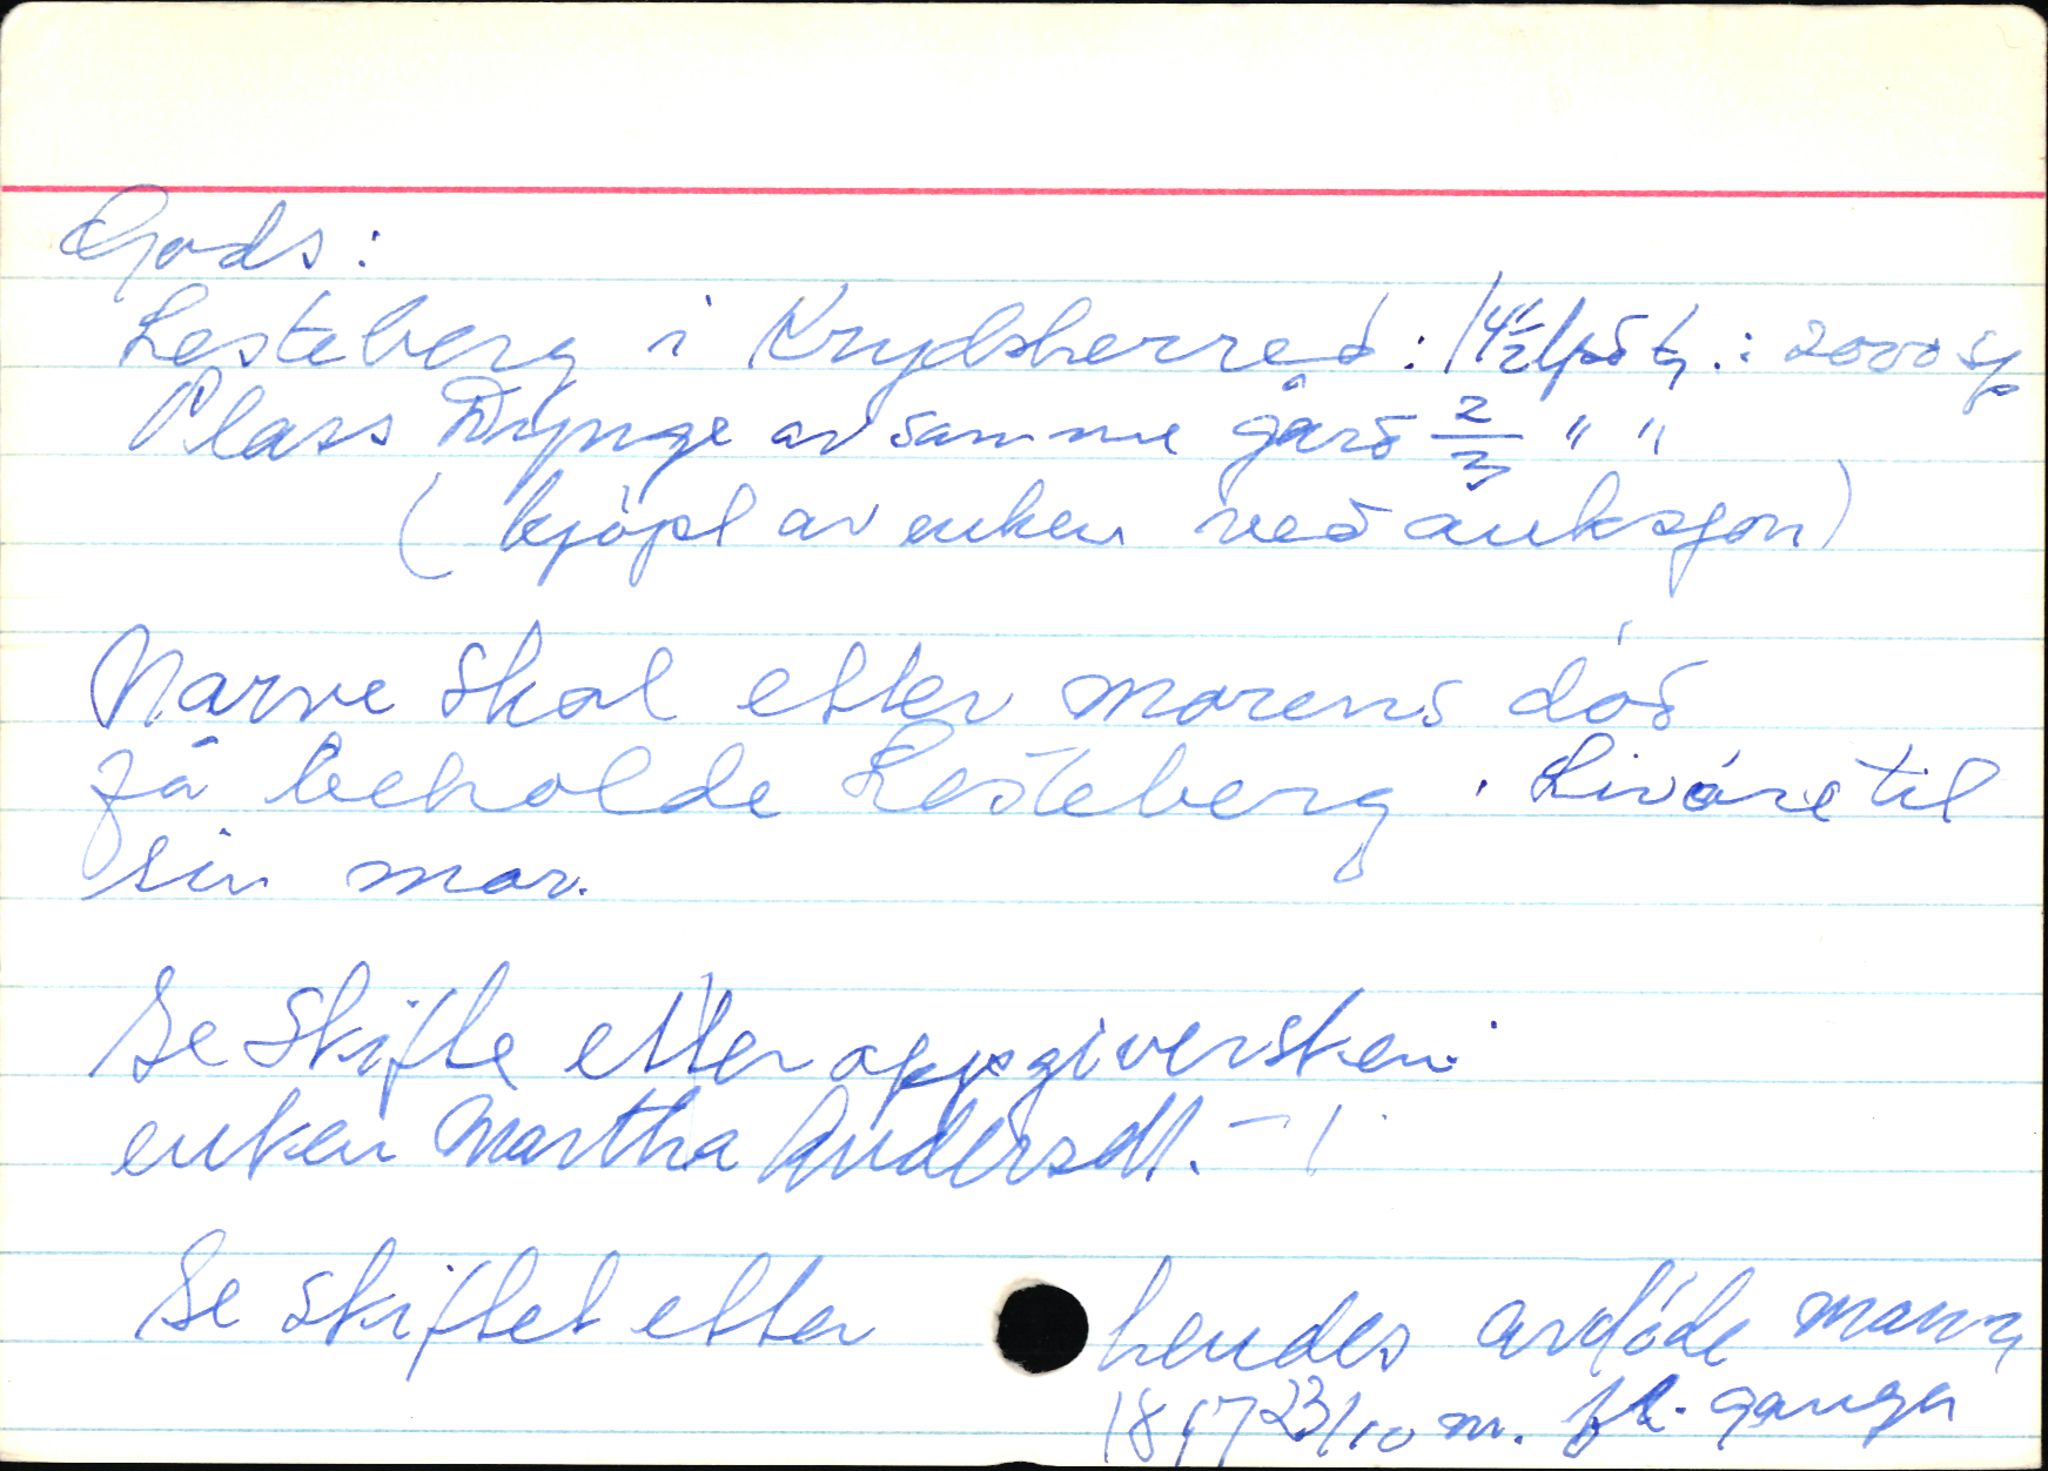 Gods:
Lesteberg i Krydsherred: 14½ lpd tg.: 2000 sp
Plass Dynge av samme gård 2/3 " "
(kjöpt av enken ved auksjon)
Narve skal etter morens död
få beholde Lesteberg. Livöre til
sin mor.
Se skifte etter oppgiversken:
enken Martha Andersdt. -
Se skiftet etter hendes avdöde mann
1817 23/10 m. fl. ganger